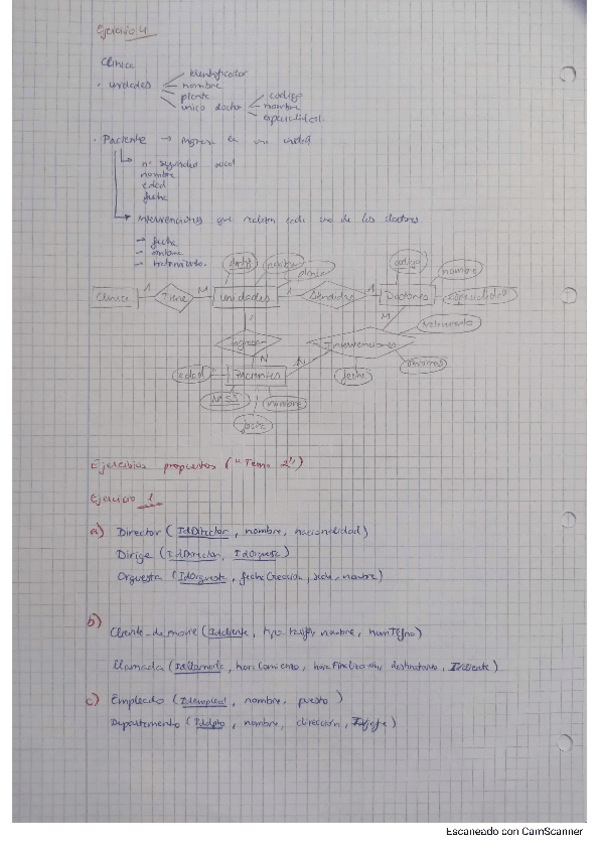 Ejercicio 4
Clinica
· unidades
identificador
nombre
planta
unico doctor
codigo
nombre
especialidad.
· Paciente → ingresa en una unidad
nº seguridad social
nombre
edad
fecha
Intervenciones que realizan cada uno de los doctores
→ fecha
→ sintoma
→ tratamiento.
Clinica 1 Tiene M unidades 1 Atendidas 1 Doctores
nombre
planta
codigo
nombre
especialidad
Ingresan
N
M
Intervenciones
tratamiento
sintomas
fecha
edad
Pacientes
N
NºSS
nombre
fecha
Ejercicios propuestos ("Tema 2")
Ejercicio 1
a) Director (IdDirector, nombre, nacionalidad)
Dirige (IdDirector, IdOrquesta)
Orquesta (IdOrquesta, fechaCreación, sede, nombre)
b) Cliente_de_movil (Idcliente, tipo tarifa, nombre, numTlfno)
Llamada (IdLlamada, hora Comienzo, hora Finalización, destinatario, Idcliente)
c) Empleado (Idemplead, nombre, puesto)
Departamento (Iddpto, nombre, dirección, Idjefe)
Escaneado con CamScanner